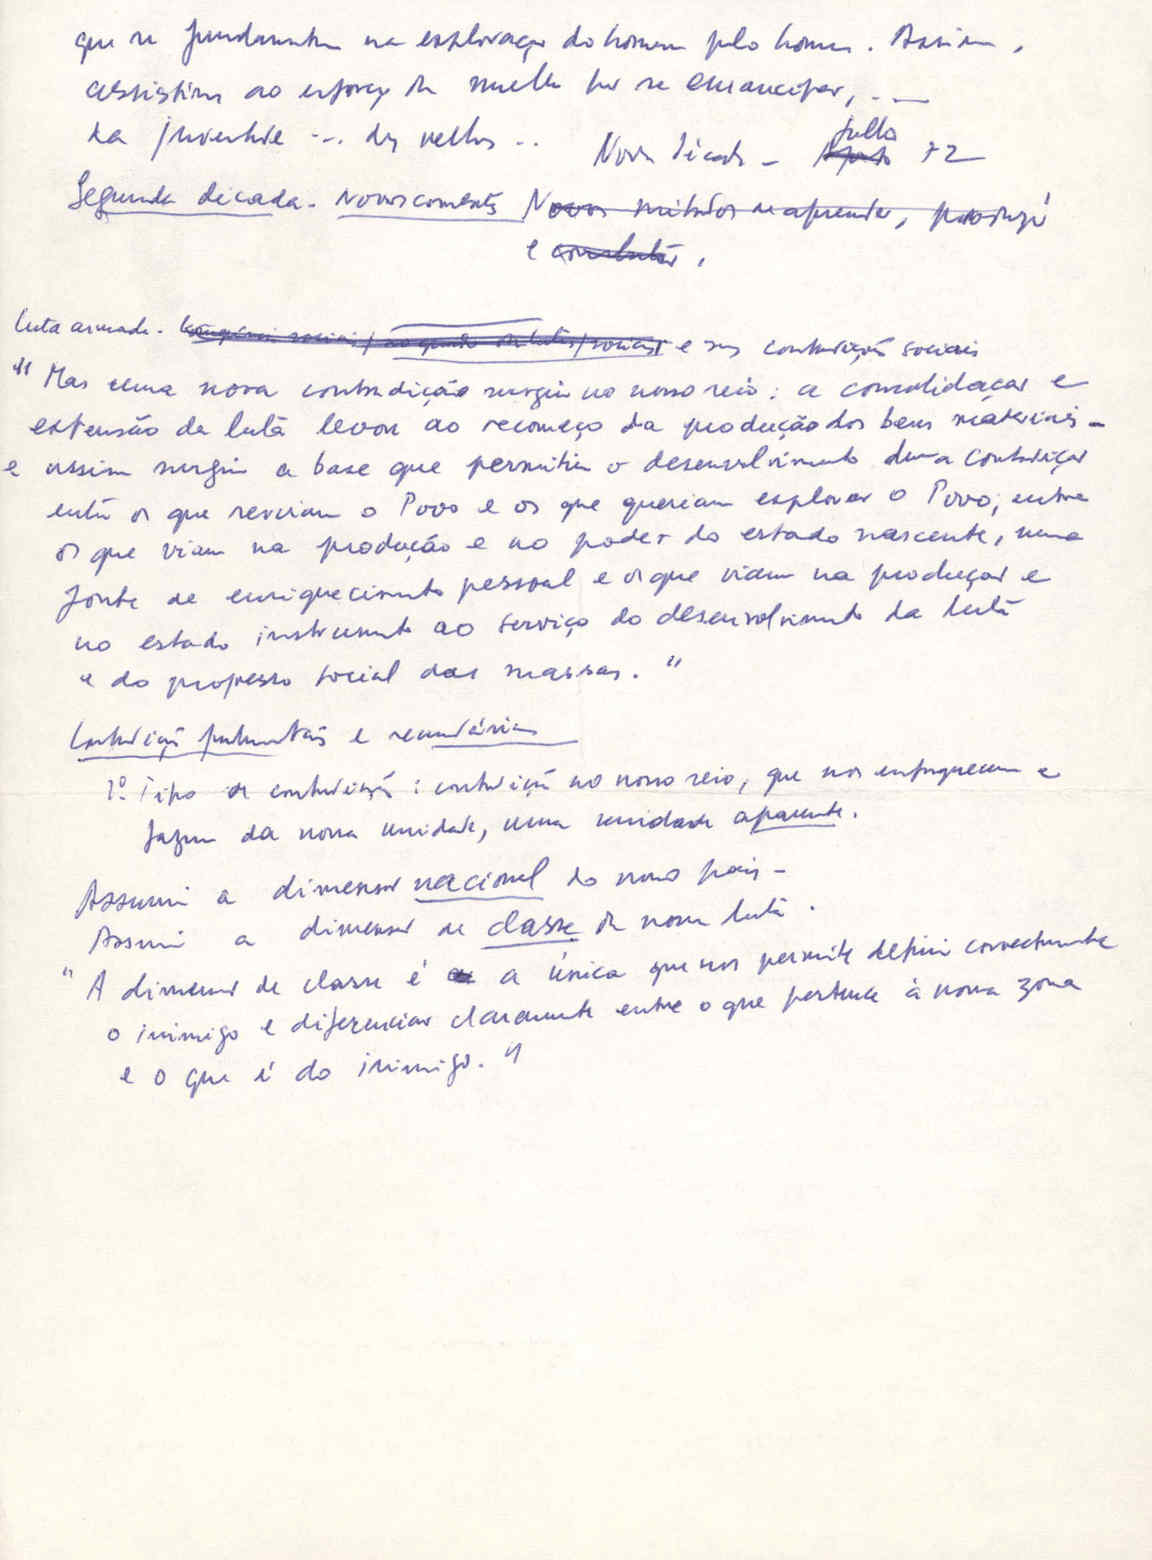 que se fundamentam na exploração do homem pelo homem. Assim,
assistimos ao esforço da mulher por se emancipar, ...
da juventude ... dos velhos ..
Julho
Nova Década - Agosto 72
Segunda década - novos combates Novos métodos de aprender, produzir
e combater.
Luta armada - e suas contradições sociais
"Mas uma nova contradição surgiu no nosso seio: a consolidação e
extensão da luta levou ao recomeço da produção dos bens materiais -
e assim surgiu a base que permitiu o desenvolvimento duma contradição
entre os que serviam o Povo e os que queriam explorar o Povo, entre
os que viam na produção e no poder do estado nascente, uma
fonte de enriquecimento pessoal e os que viam na produção e
no estado instrumento ao serviço do desenvolvimento da luta
e do progresso social das massas."
Contradições e secundárias
1º. Tipo de contradição: contradição no nosso seio, que nos enfraquecem e
fazem da nossa unidade, uma unidade aparente.
Assumir a dimensão nacional do nosso país -
Assumir a dimensão de classe da nossa luta.
"A dimensão de classe é a única que nos permite definir correctamente
o inimigo e diferenciar claramente entre o que pertence à nossa zona
e o que é do inimigo."